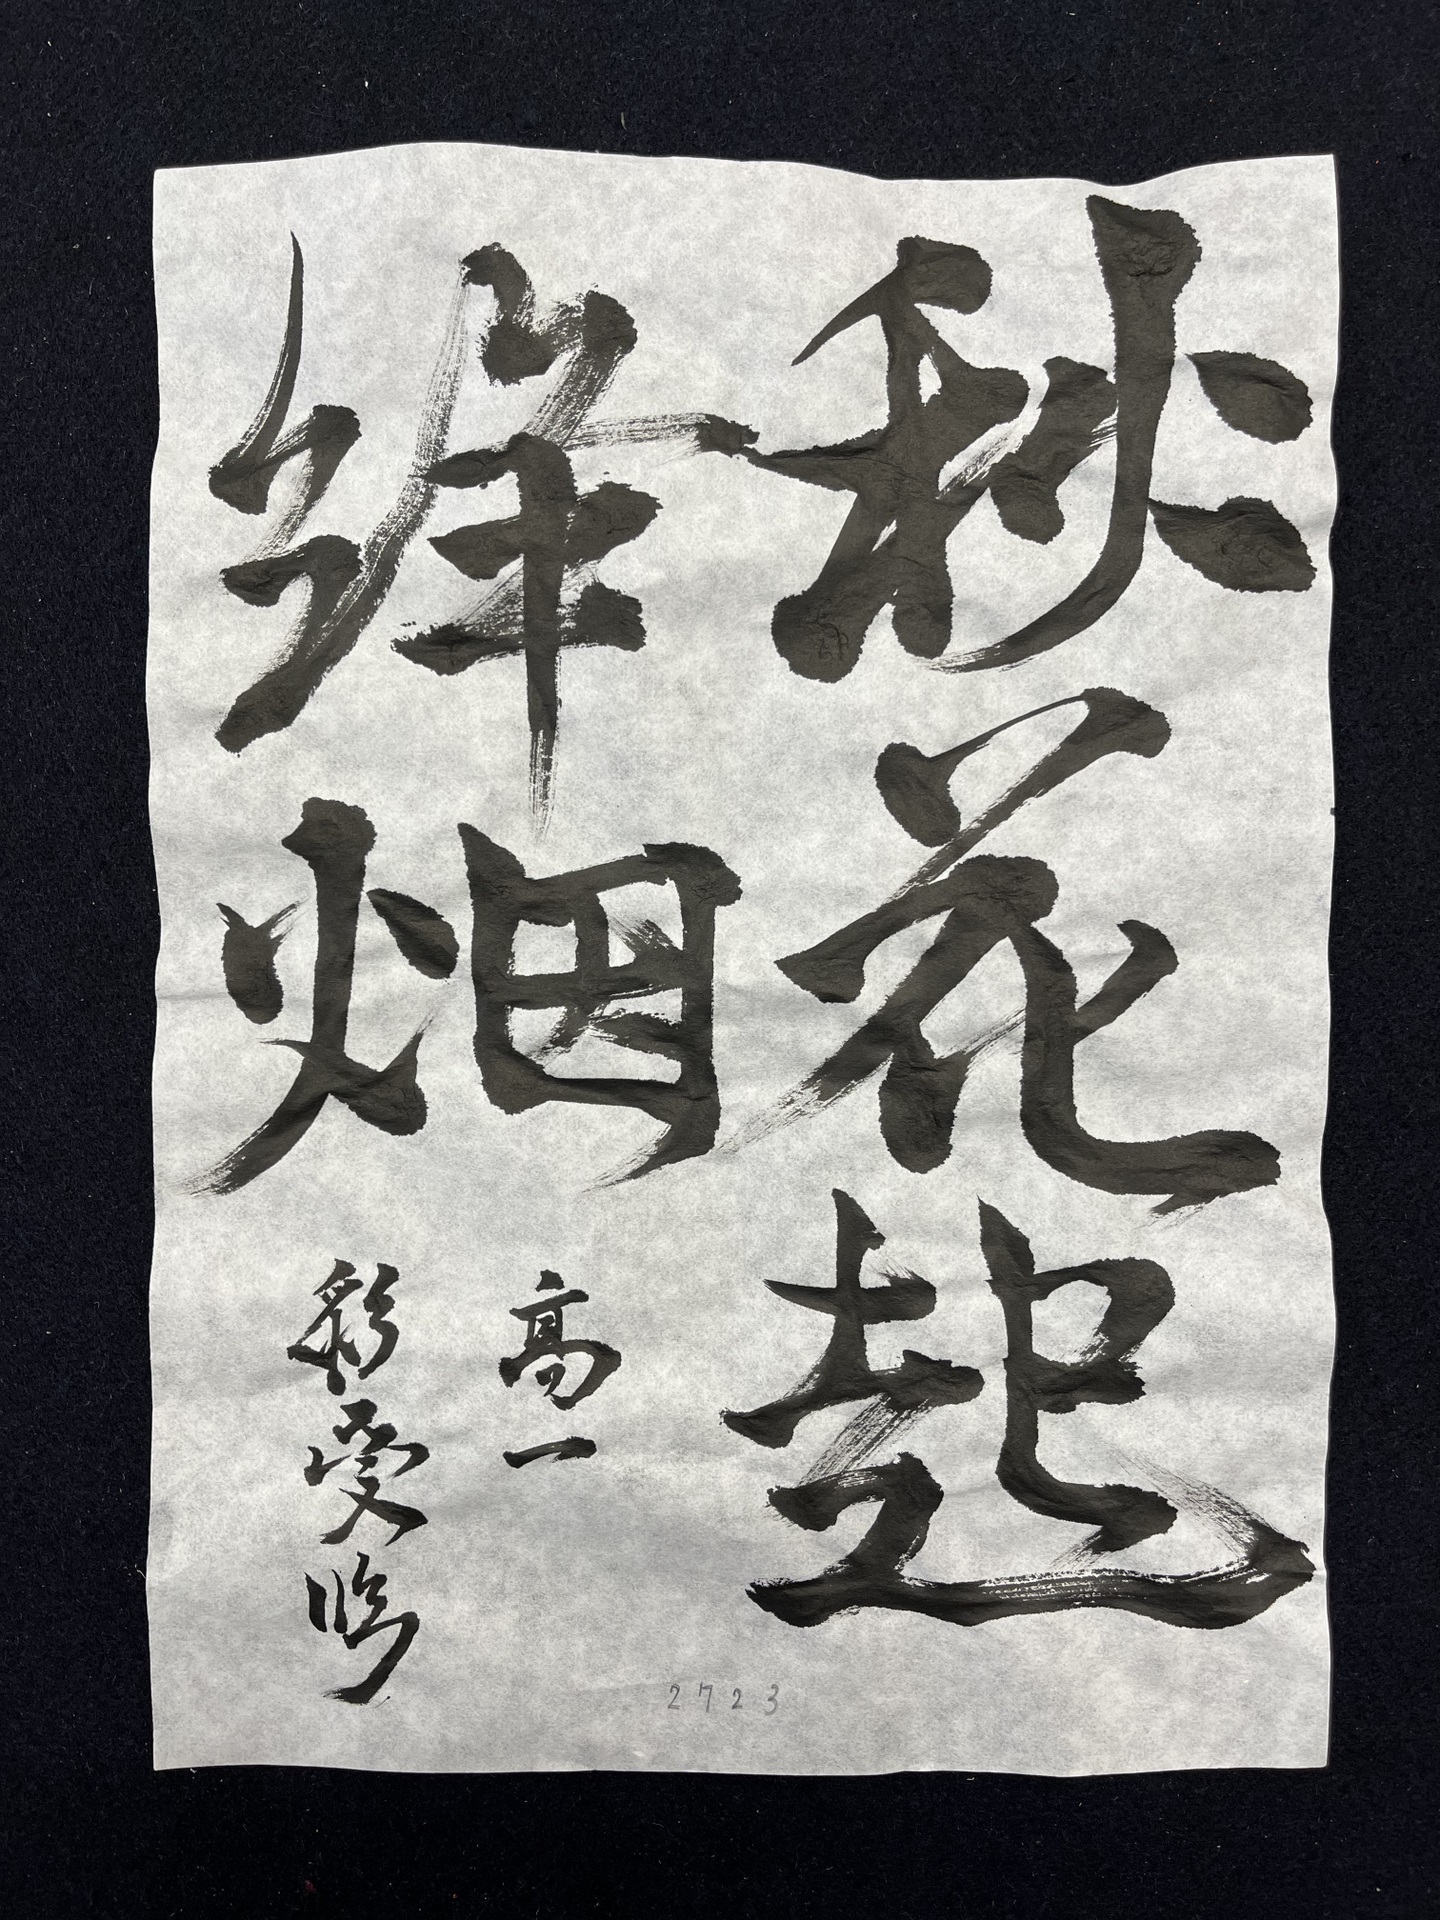 秋花起
絳烟
高一
彩愛臨
2723